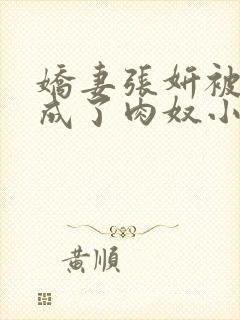 嬌妻張妍被
成了肉奴小
黃順